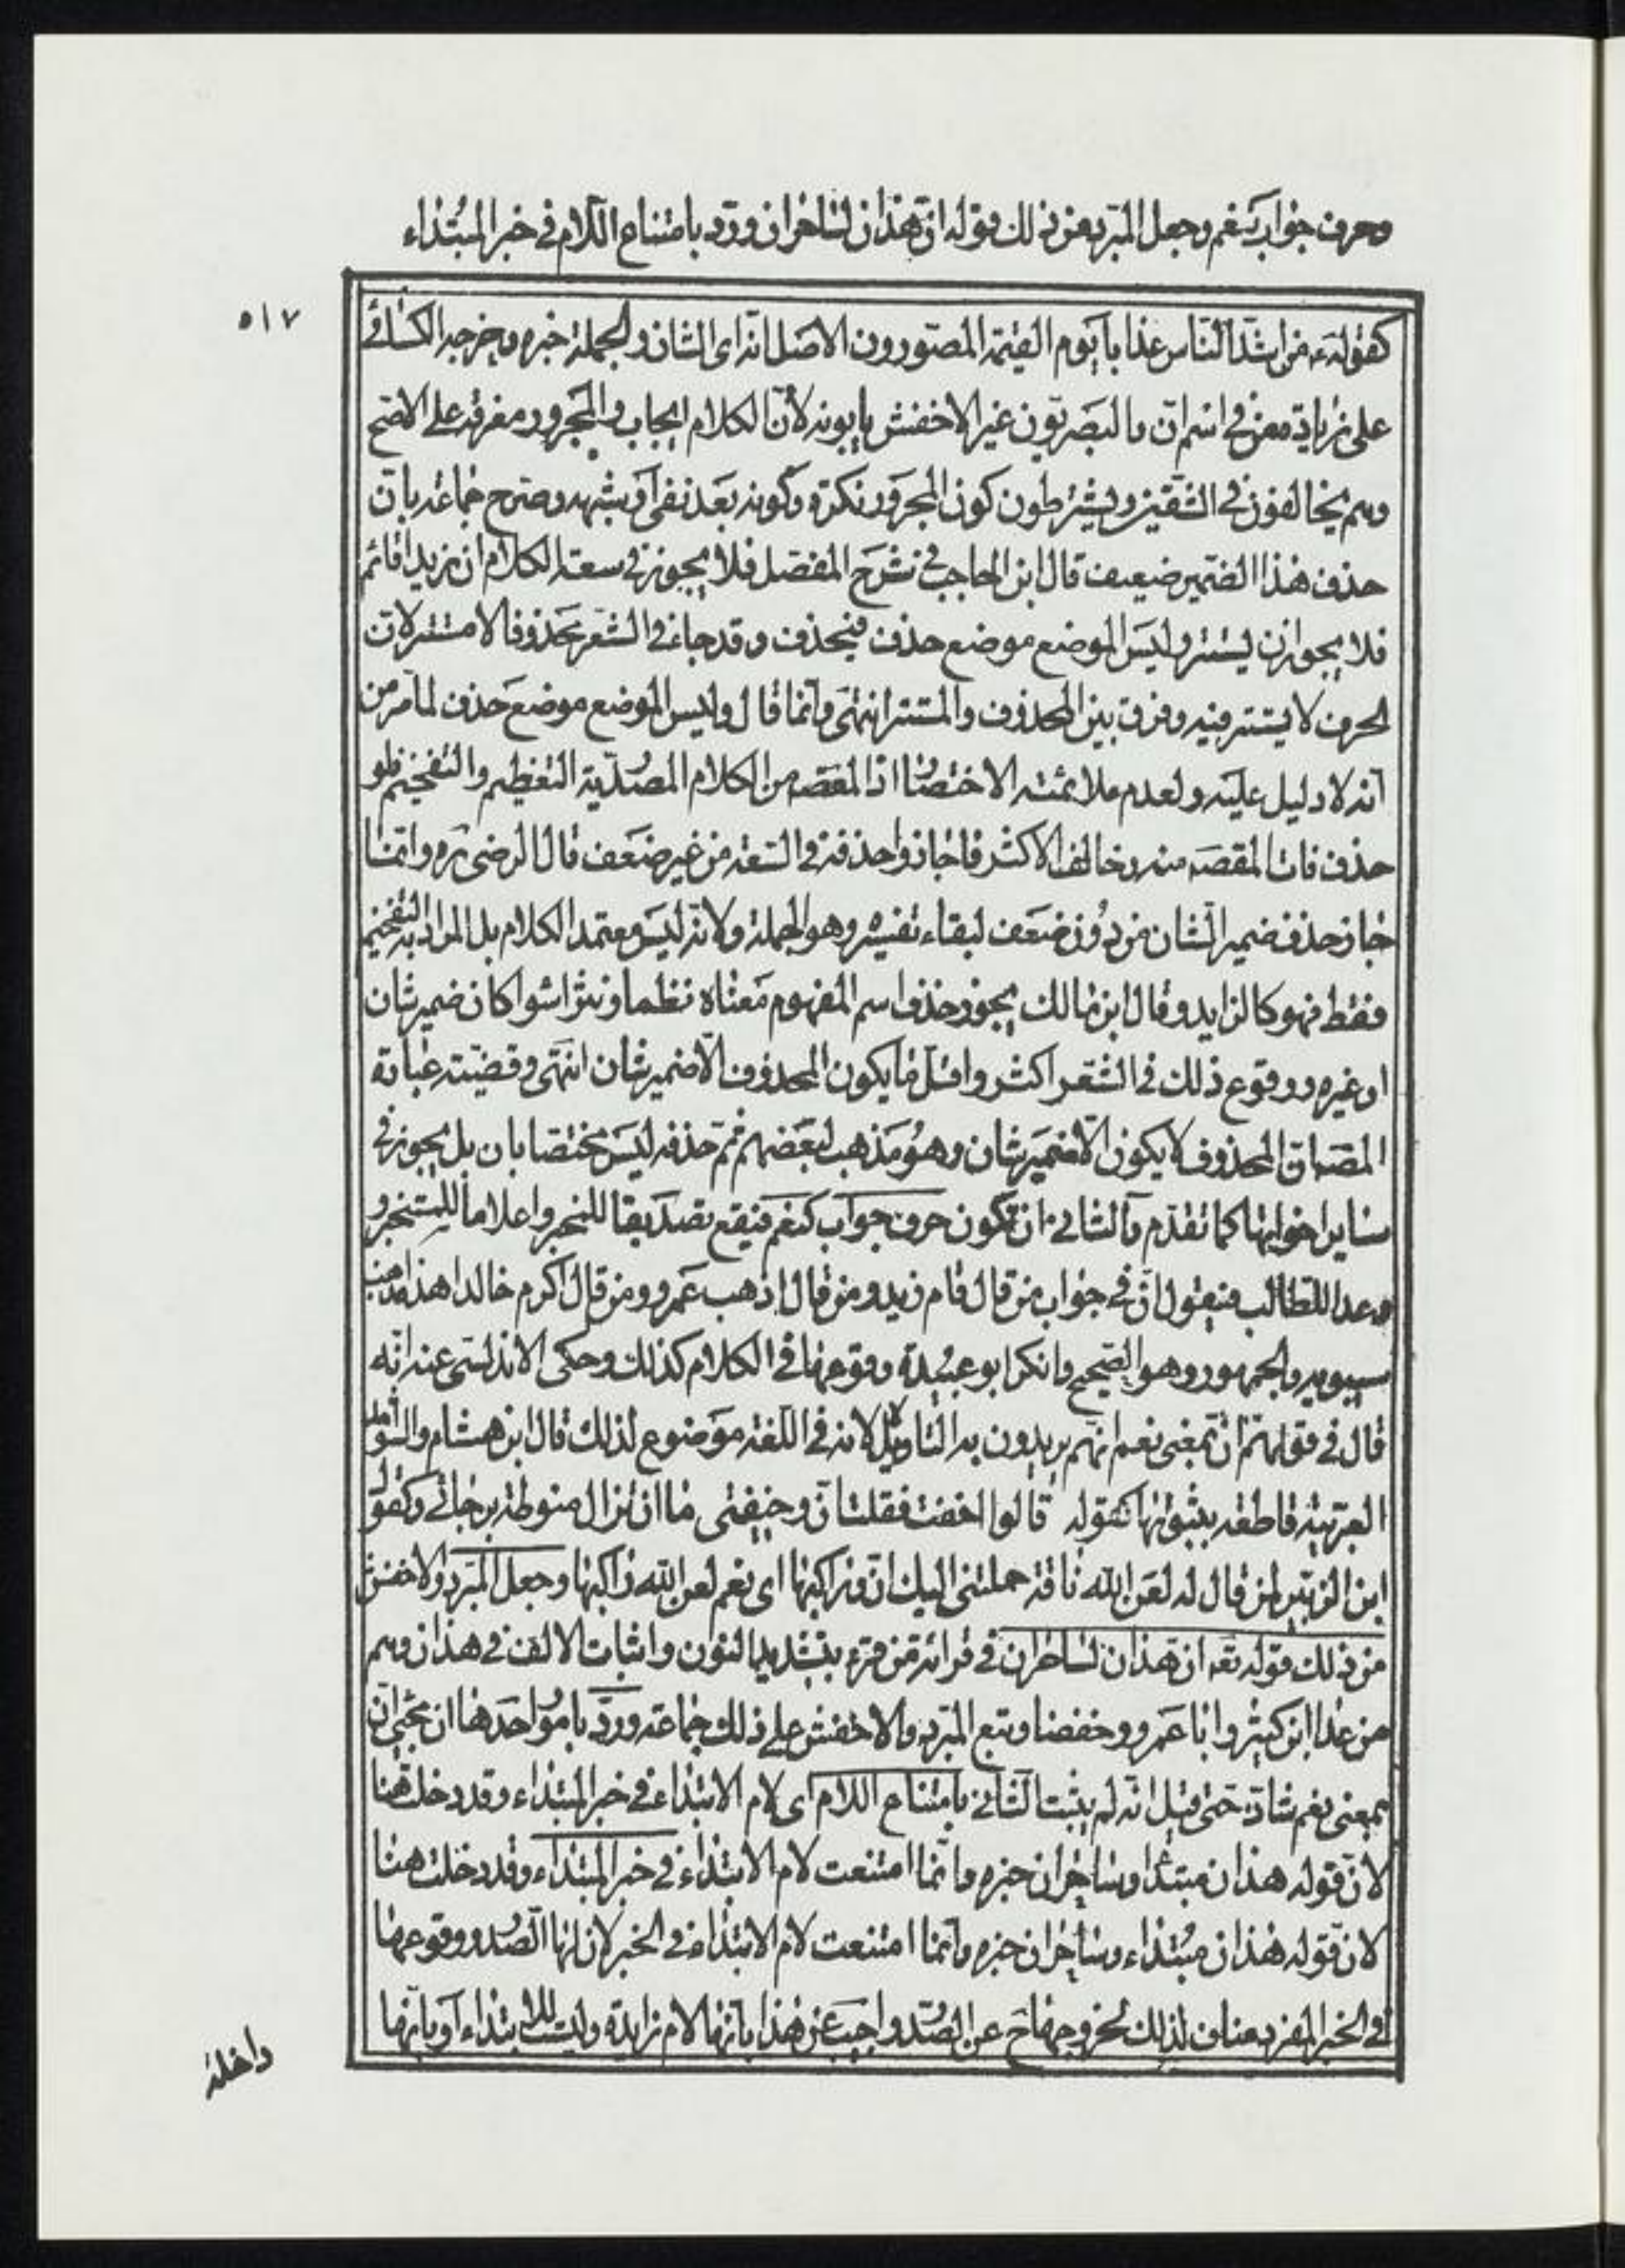 وحرف جواب كنعم وجعل المبرد من ذلك قوله ان هذان لساحران ورد بامتناع اللام في خبر المبتداء
٥١٧
كقولهء من اشد الناس عذابا يوم القيمة المصورون الاصل انه اى الشان والجملة خبره وخرجه الكسائى
على زيادة من في اسم ان والبصريون غير الاخفش يابونه لأن الكلام ايجاب والمجرور معرفة على الاصح
وهم يخالفون في الشقين ويشترطون كون المجرور نكرة وكونه بعد نفى او شبهه وصرح جماعة بان
حذف هذا الضمير ضعيف قال ابن الحاجب في شرح المفصل فلا يجوز في سعة الكلام ان زيدا قائم
فلا يجوز ان يستتر وليس الموضع موضع حذف فيحذف وقد جاء في الشعر محذوفا لا مستترلان
الحرف لا يستتر فيه وفرق بين المحذوف والمستتر انتهى وانما قال وليس الموضع موضع حذف لما مر من
انه لا دليل عليه ولعدم ملائمته الاختصار اذ المقصه من الكلام المصدّر به التعظيم والتفخيم فلو
حذف فات المقصه منه وخالف الاكثر فاجازوا حذفه في السعة من غير ضعف قال الرضى ره وانما
جاز حذف ضمير الشان من دون ضعف لبقاء تفسيره وهو الجملة ولانه ليس معتمد الكلام بل المراد به التفخيم
فقط فهو كالزايد وقال ابن مالك يجوز حذف اسم المفهوم معناه نظما ونثرا سواء كان ضمير شان
او غيره ووقوع ذلك في الشعر اكثر واقل ما يكون المحذوف الا ضمير شان انتهى وقضيته عبارة
المصه ان المحذوف لا يكون الا ضمير شان وهو مذهب لبعضهم ثم حذفه ليس مختصا بان بل يجوز في
ساير اخواتها كما تقدم والثانى ان تكون حرف جواب كنعم فيقع تصديقا للمخبر واعلاما للمستخبر و
وعدا للطالب فيقول ان في جواب من قال قام زيد ومن قال اذهب عمرو ومن قال اكرم خالدا هذا مذهب
سيبويه والجمهور وهو الصحيح وانكر ابو عبيدة وقوعها في الكلام كذلك وحكى الاندلسى عنه انه
قال في قولهم ان بمعنى نعم انهم يريدون به التاويل لا انه في اللغة موضوع لذلك قال ابن هشام والشواهد
العربية قاطعة بثبوتها كقوله قالوا اخفت فقلت ان وخيفتى ما ان تزال منوطة برجائى وكقول
ابن الزبير لمن قال له لعن الله ناقة حملتنى اليك ان وراكبها اى نعم لعن الله راكبها وجعل المبرد والاخفش
من ذلك قوله تعه ان هذان لساحران في قرائة من قرء بتشديد النون واثبات الالف في هذان وهم
من عدا ابن كثير وابا عمرو وحفصا وتبع المبرد والاخفش على ذلك جماعة وردّ بامور احدها ان مجئ ان
بمعنى نعم شاذ حتى قيل انه لم يثبت الثانى بامتناع اللام اى لام الابتداء في خبر المبتداء وقد دخلت هنا
لان قوله هذان مبتدا وساحران خبره وانما امتنعت لام الابتداء في خبر المبتداء وقد دخلت هنا
لان قوله هذان مبتداء وساحران خبره وانما امتنعت لام الابتداء في الخبر لان لها الصدر ووقوعها
في الخبر المفرد مناف لذلك لخروجها ح عن الصدر واجيب عن هذا بانها لام زايدة وليست للابتداء او بانها
داخلة